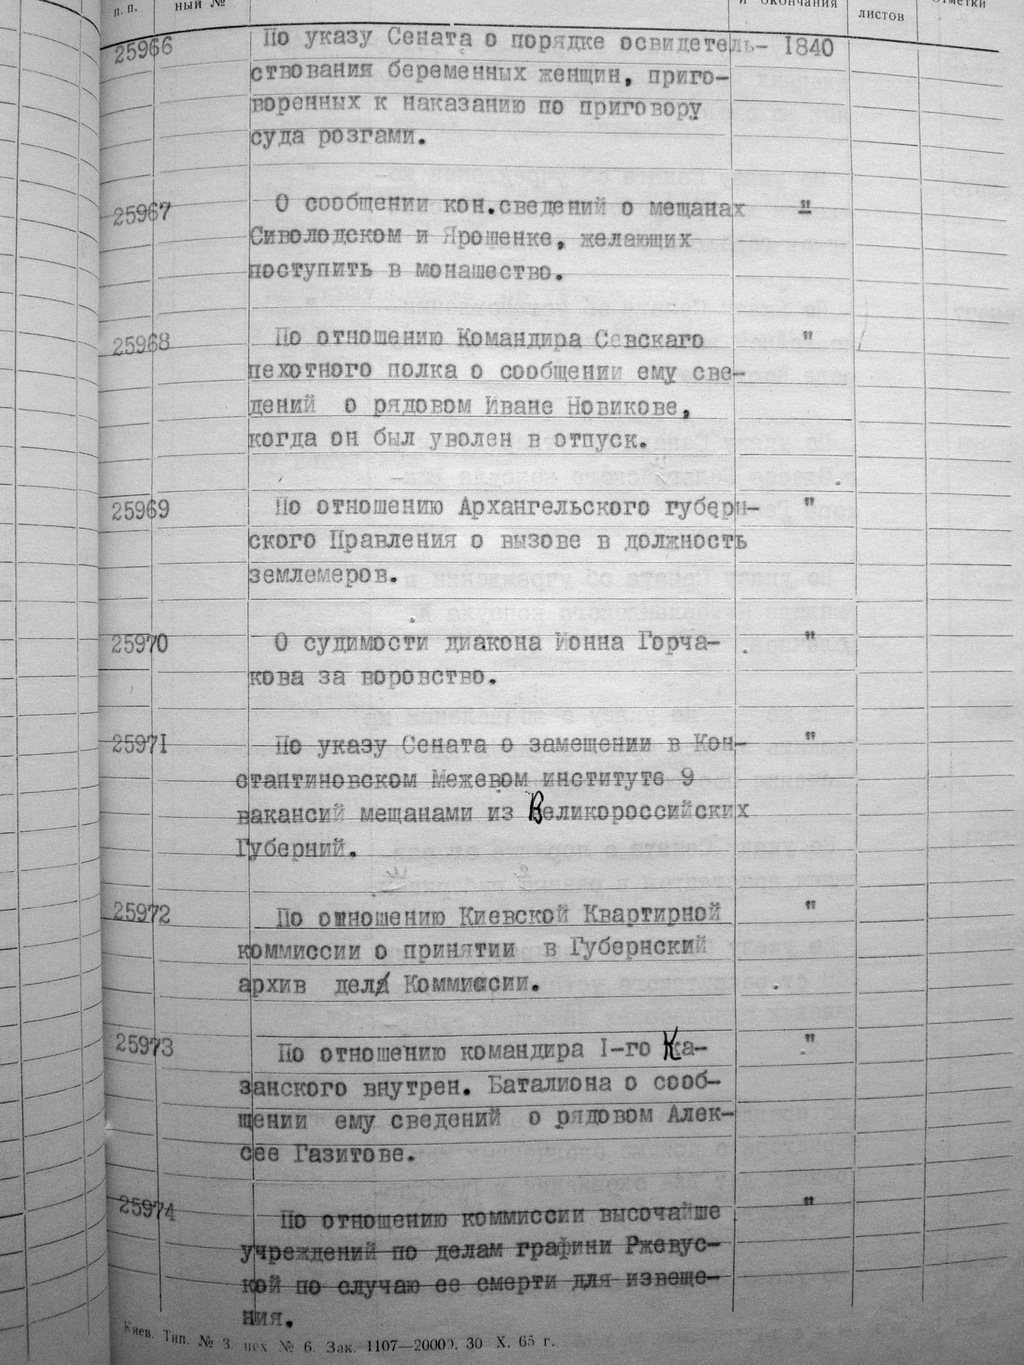 п. п. ный № и окончания листов отметки
25966 По указу Сената о порядке освидетель- 1840
ствования беременных женщин, приго-
воренных к наказанию по приговору
суда розгами.
25967 О сообщении кон.сведений о мещанах "
Сиволодском и Ярошенке, желающих
поступить в монашество.
25968 По отношению Командира Севскаго "
пехотного полка о сообщении ему све-
дений о рядовом Иване Новикове,
когда он был уволен в отпуск.
25969 По отношению Архангельского губерн- "
ского Правления о вызове в должность
землемеров.
25970 О судимости диакона Ионна Горча- "
кова за воровство.
25971 По указу Сената о замещении в Кон- "
стантиновском Межевом институте 9
вакансий мещанами из Великороссийских
Губерний.
25972 По отношению Киевской Квартирной "
коммиссии о принятии в Губернский
архив дел Коммиссии.
25973 По отношению командира I-го Ка- "
занского внутрен. Баталиона о сооб-
щении ему сведений о рядовом Алек-
сее Газитове.
25974 По отношению коммиссии высочайше "
учреждений по делам графини Ржевус-
кой по случаю ее смерти для извеще-
ния.
Киев. Тип. № 3. цех № 6. Зак. 1107—20000. 30 X. 65 г.